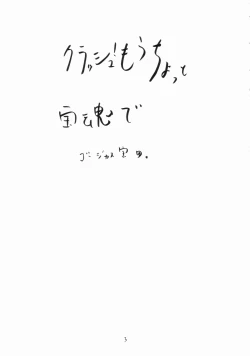 クラッシュ!もうちょっと
宝魂で
ゴージャス宝田.
3